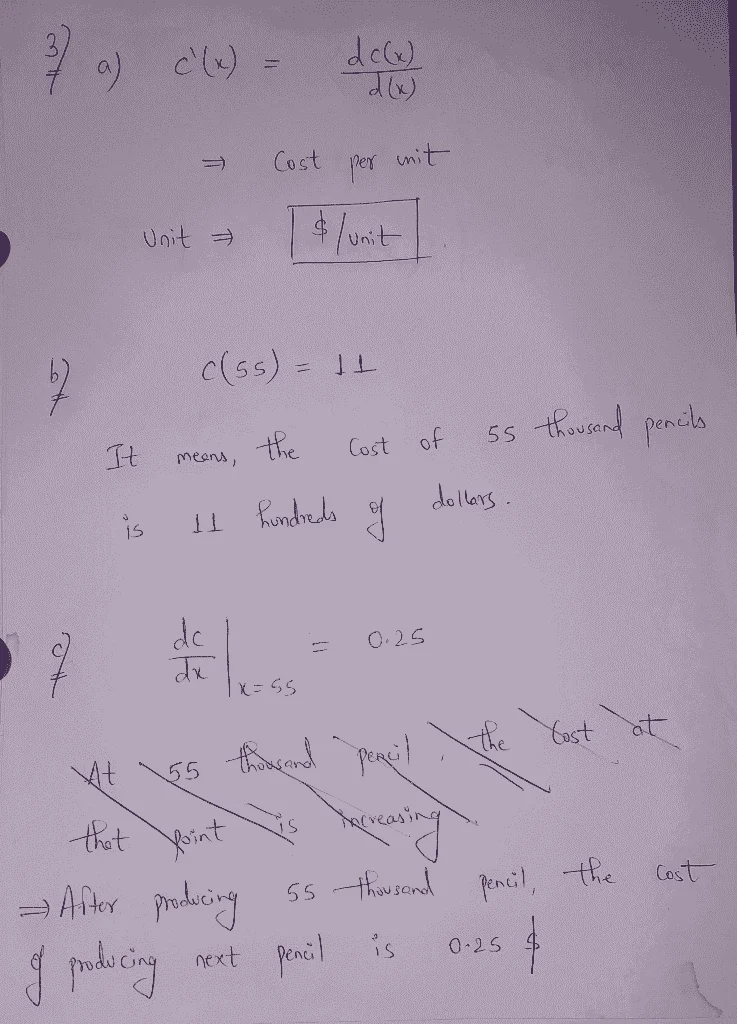 3) a) c'(x) = dc(x)/d(x)
⇒ Cost per unit
Unit ⇒ $/unit
b) c(55) = 11
It means, the Cost of 55 thousand pencils
is 11 hundreds of dollars.
c) dc/dx |x=55 = 0.25
At 55 thousand pencil, the Cost at
that point is increasing
⇒ After producing 55 thousand pencil, the cost
of producing next pencil is 0.25 $